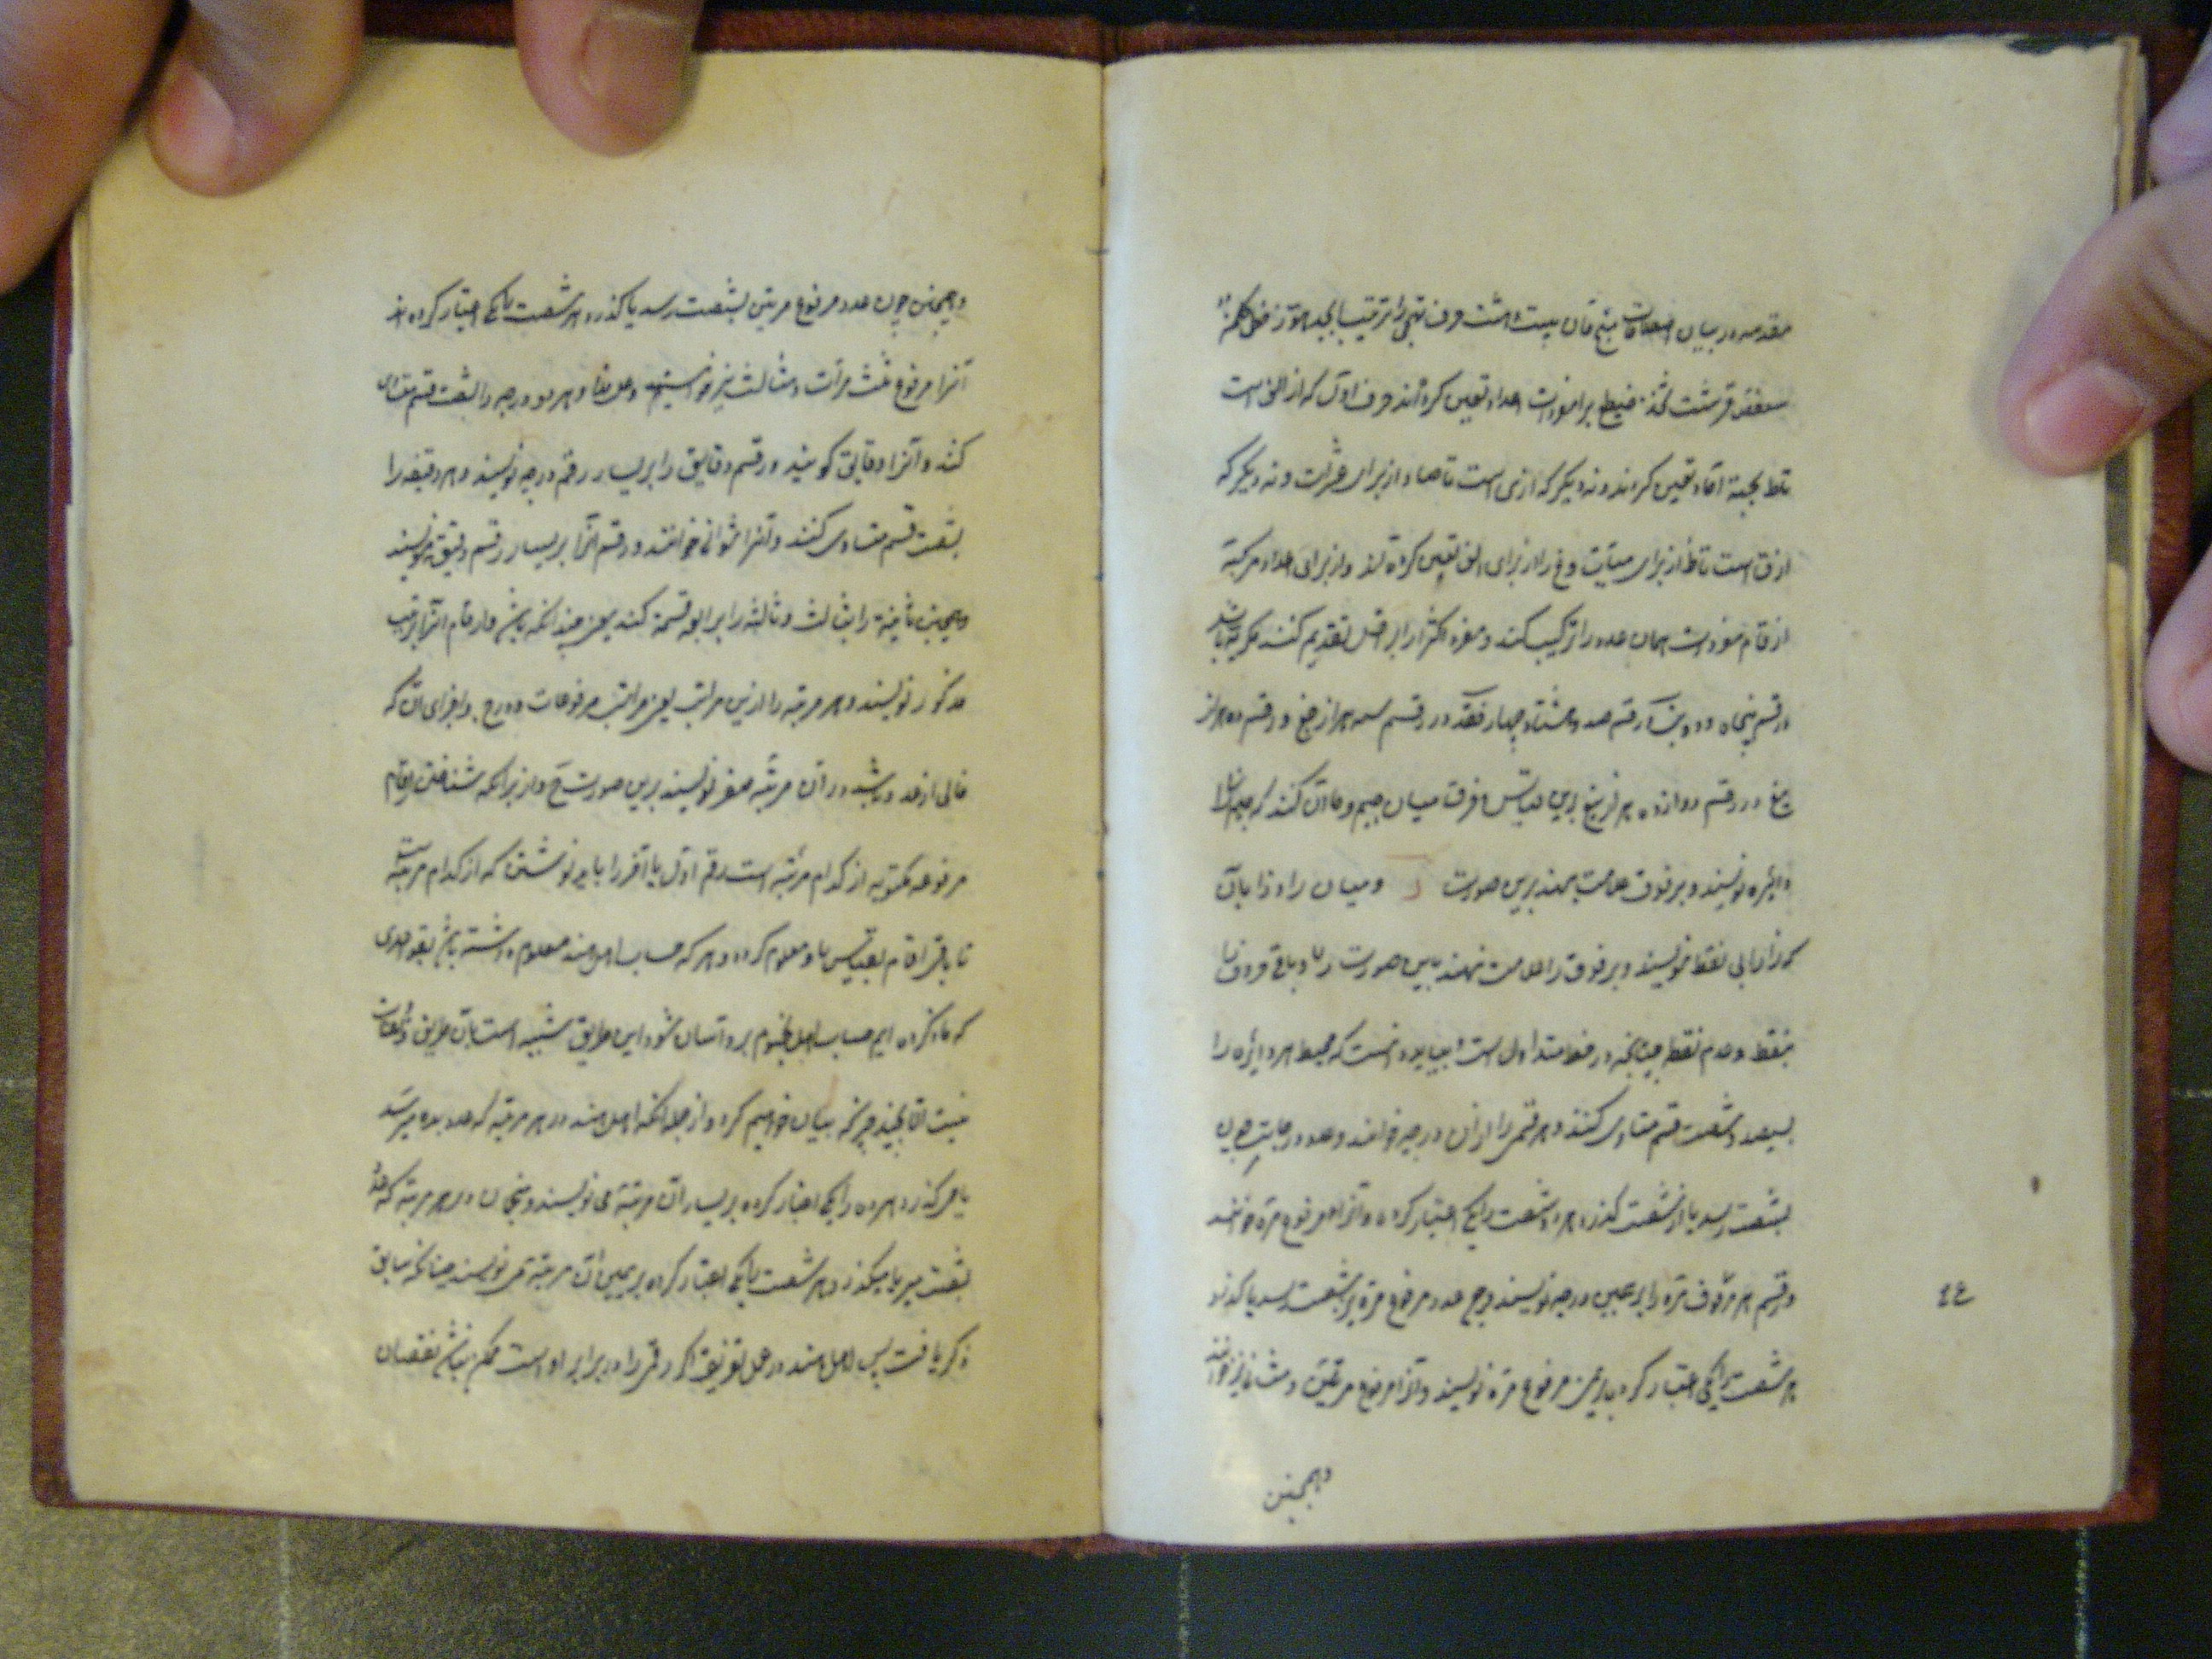 مقدمه در بیان اصطلاحات منجمان بیست و هشت حرف تهجی را بترتیب ابجد هوز حطی کلمن
سعفص قرشت ثخذ ضظغ برای مفردات اعداد تعیین کرده‌اند حرف اول که از الف است
تا ط بجهة آحاد تعیین کرده‌اند و نه دیگر که از ی است تا صاد از برای عشرات و نه دیگر که
از ق است تا ظ از برای میآت و غ را از برای الف تعیین کرده‌اند و از برای اعداد مرکبه
ارقام مفردات همان عدد را ترکیب کنند و عدد اکثر را بر اقل تقدیم کنند
و رقم پنجاه و دو نب و رقم صد و هشتاد و چهار قفد و رقم سه هزار جغ و رقم ده هزار
یغ و رقم دوازده هزار یبغ برین قیاس و فرق میان جیم و حا آن کنند که جیم را
دایره نویسند و بر فوق علامت نهند برین صورت و میان را و زا بآن
که زا را بی نقطه نویسند و بر فوق را علامت نهند باین صورت و باقی حروف را
بنقط و عدم نقطه چنانچه در خط متداول است و بباید دانست که محیط هر دایره را
بسیصد و شصت قسم متساوی کنند و هر قسمی را از آن درجه خوانند و عدد درجات چون
بشصت رسد یا از شصت گذرد هر شصت را یکی اعتبار کرده و آنرا مرفوع مره خوانند
و رقم مرفوع مره را بر یمین درجه نویسند و چون عدد مرفوع مره بشصت رسد یا گذرد
هر شصت را یکی اعتبار کرده بر یمین مرفوع مره نویسند و آنرا مرفوع مرتین و مثانی نیز خوانند
وهمچنین
وهمچنین چون عدد مرفوع مرتین بشصت رسد یا گذرد هر شصت را یکی اعتبار کرده‌اند
آنرا مرفوع ثلث مرات و مثالث نیز خوانند و علی هذا و هر درجه را بشصت قسم متساوی
کنند و آنرا دقایق گویند و رقم دقایق را بر یسار رقم درجه نویسند و هر دقیقه را
بشصت قسم متساوی کنند و آنرا ثوانی خوانند و رقم آنرا بر یسار رقم دقیقه نویسند
وهمچنین ثانیه را بثالث و ثالثه را برابعه قسمت کنند یعنی چندانکه باشد و ارقام آنرا بترتیب
مذکور نویسند و هر مرتبه را ازین مراتب یعنی مراتب مرفوعات و درج و اجزای آن که
خالی از عدد باشد در آن مرتبه صفر نویسند برین صورت و از برای آنکه شناختن ارقام
مرفوعه مکتوبه از کدام مرتبه است رقم اول یا آخر را باید نوشتن که از کدام مرتبه است
تا باقی ارقام بقیاس باو معلوم گردد و هر که حساب اهل هند معلوم داشته باشد بقواعدی
که یاد کرده‌ایم حساب اهل نجوم برو آسان شود این طریق شبیه است بآن طریق و تفاوت
نیست الا بچند چیز که بیان خواهیم کرد و از جمله آنکه اهل هند در هر مرتبه که عدد بده میرسد
یا میگذرد هر ده را یکی اعتبار کرده بر یسار آن مرتبه می نویسند و منجمان در هر مرتبه که عدد
بشصت میرسد یا میگذرد هر شصت را یکی اعتبار کرده بر یمین آن مرتبه می نویسند چنانکه سابق
ذکر یافت پس اهل هند در عمل تفریق اگر رقمی را در برابر او است کم نباشد نقصان